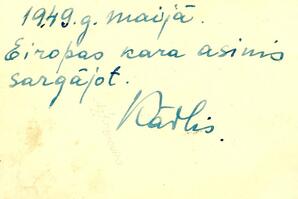 1949.g. maijā.
Eiropas kara asinis
sargājot.
Kārlis.